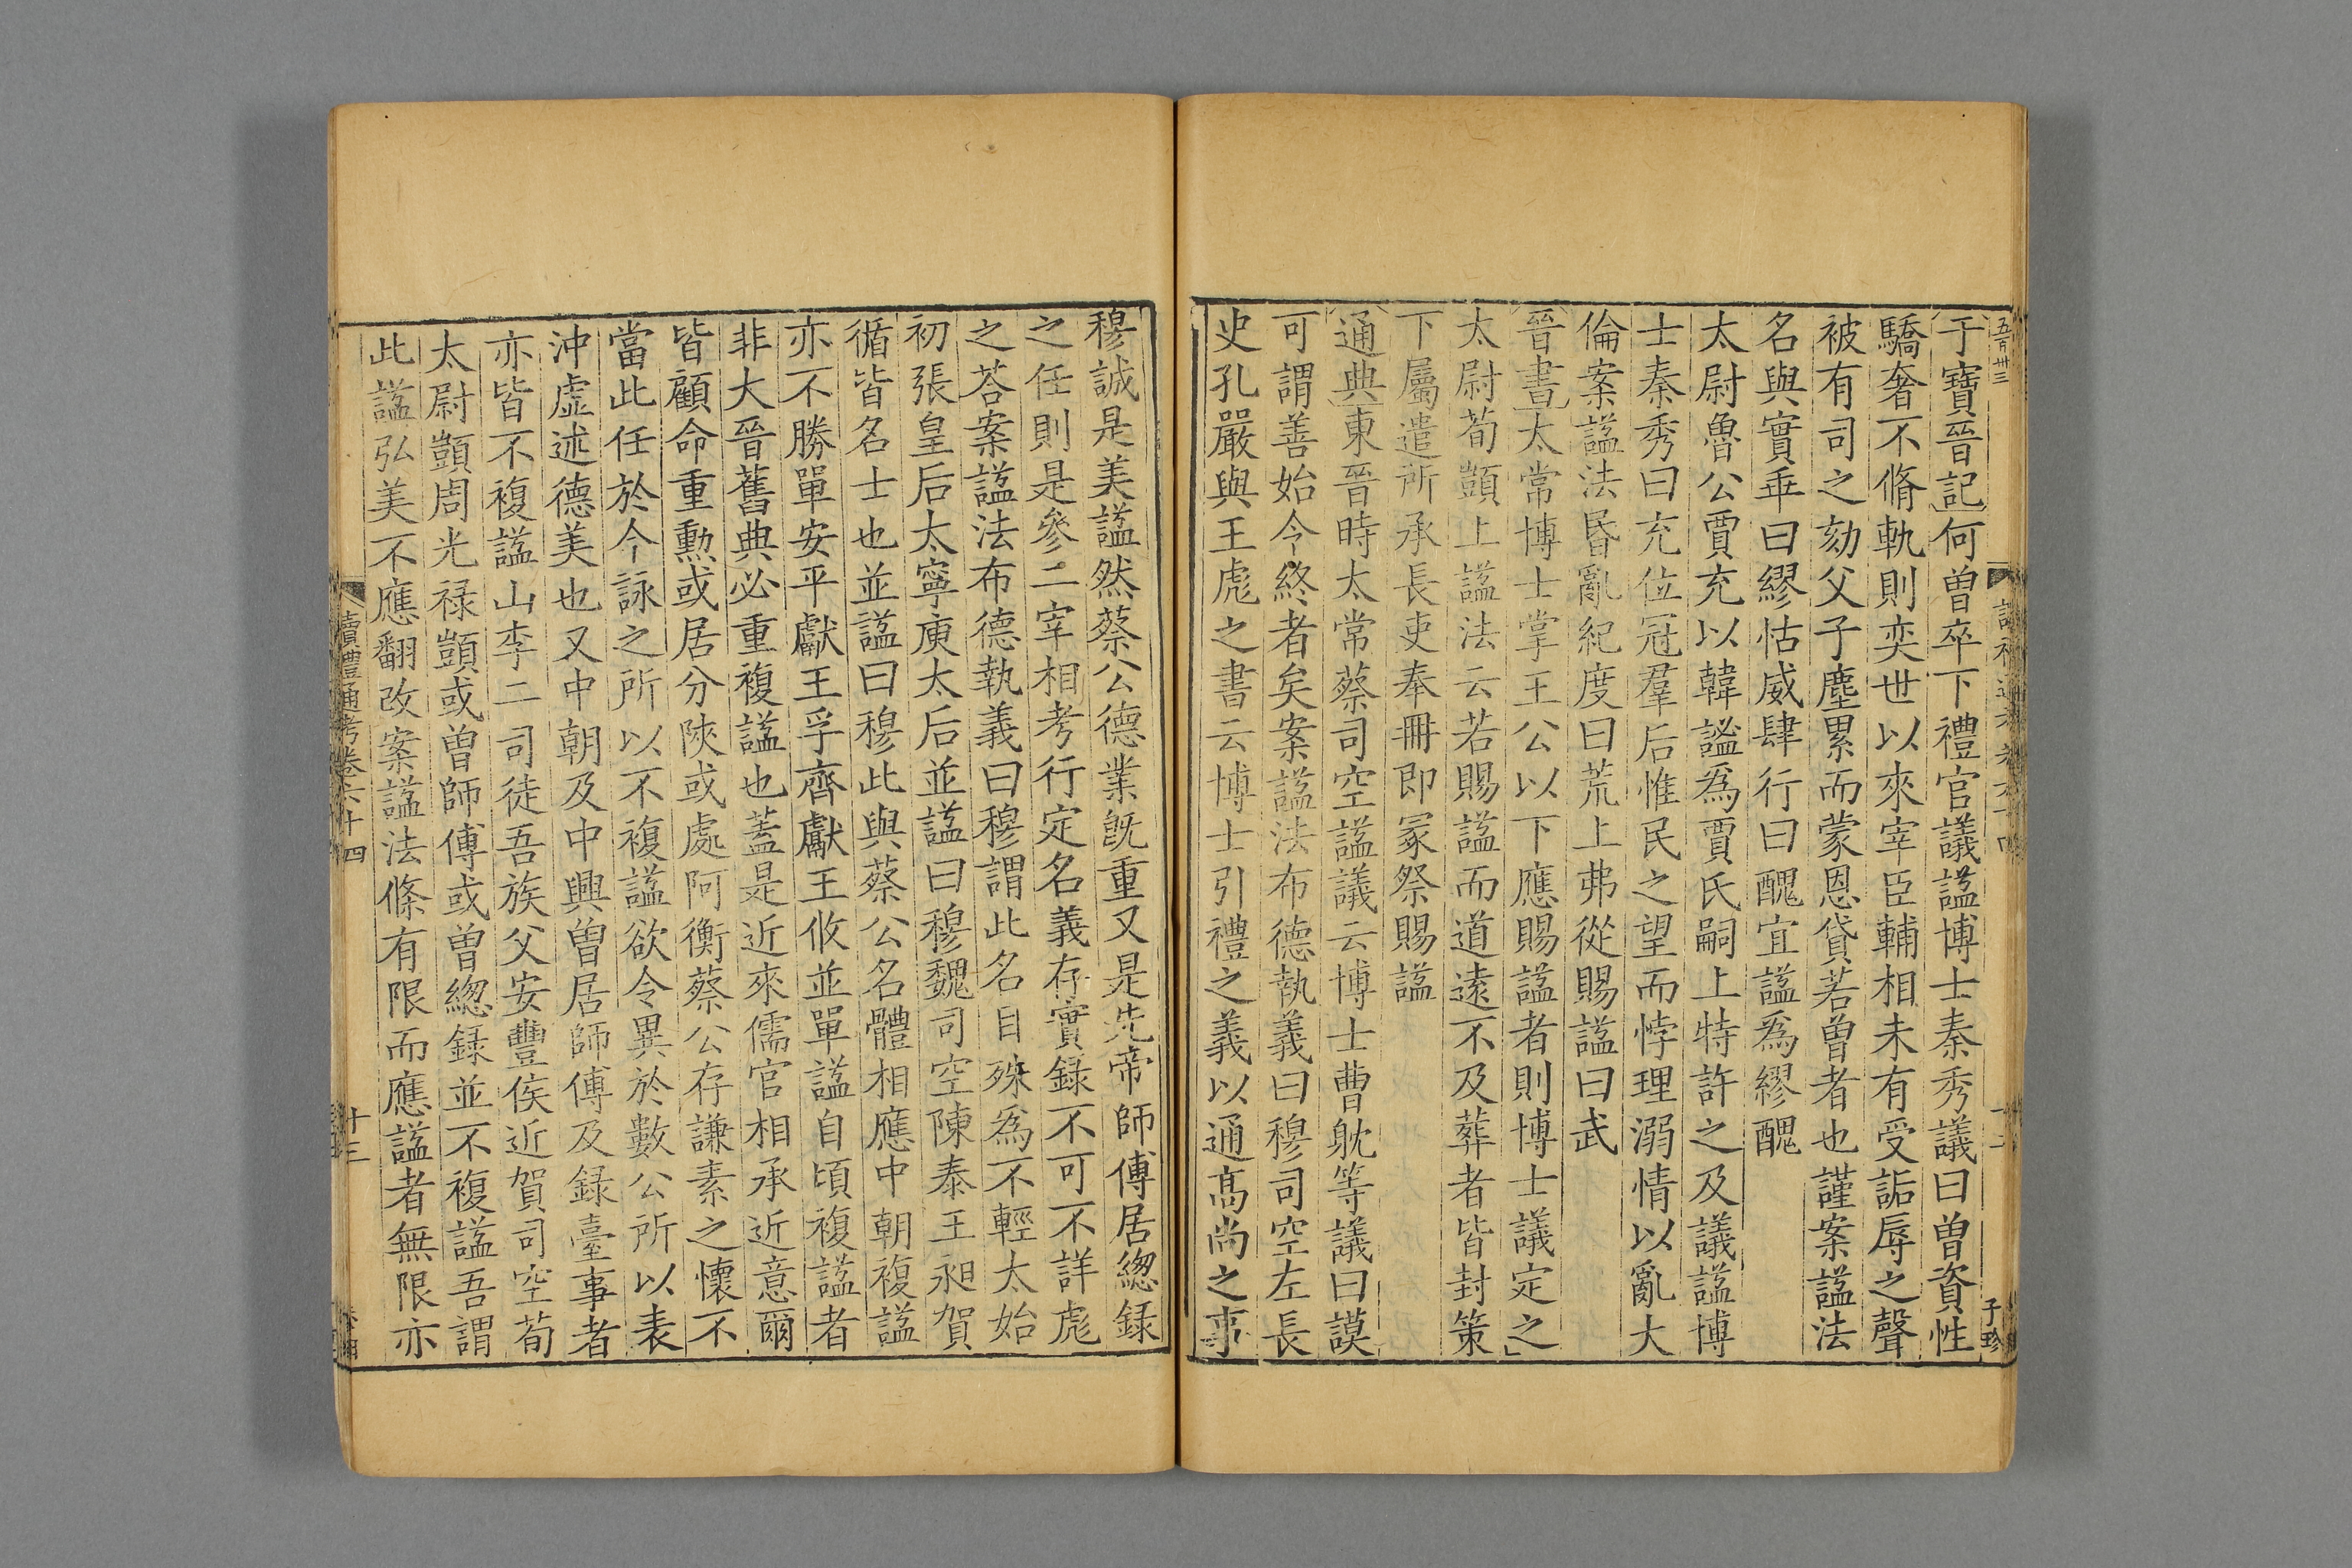 五百卅三
于寶晉記何曾卒下禮官議諡博士秦秀議曰曾資性
驕奢不脩軌則奕世以來宰臣輔相未有受詬辱之聲
被有司之劾父子塵累而蒙恩貸若曾者也謹案諡法
名與實乖曰繆怙威肆行曰醜宜諡爲繆醜
太尉魯公賈充以韓謐爲賈氏嗣上特許之及議諡博
士秦秀曰充位冠羣后惟民之望而悖理溺情以亂大
倫案諡法昬亂紀度曰荒上弗從賜諡曰武
晉書太常博士掌王公以下應賜諡者則博士議定之
太尉荀顗上諡法云若賜諡而道遠不及葬者皆封策
下屬遣所承長吏奉冊即冢祭賜諡
通典東晉時太常蔡司空諡議云博士曹躭等議曰謨
可謂善始令終者矣案諡法布德執義曰穆司空左長
史孔嚴與王彪之書云博士引禮之義以通髙尚之事
子珍
穆誠是美諡然蔡公德業旣重又是先帝師傅居緫錄
之任則是參二宰相考行定名義存實錄不可不詳彪
之荅案諡法布德執義曰穆謂此名目殊爲不輕太始
初張皇后太寧庾太后並諡曰穆魏司空陳泰王昶賀
循皆名士也並諡曰穆此與蔡公名體相應中朝複諡
亦不勝單安平獻王孚齊獻王攸並單諡自頃複諡者
非大晉舊典必重複諡也蓋是近來儒官相承近意爾
皆顧命重勲或居分陝或處阿衡蔡公存謙素之懷不
當此任於今詠之所以不複諡欲令異於數公所以表
沖虛述德美也又中朝及中興曾居師傅及録臺事者
亦皆不複諡山李二司徒吾族父安豐侯近賀司空荀
太尉顗周光祿顗或曾師傅或曾緫録並不複諡吾謂
此諡弘美不應翻改案諡法條有限而應諡者無限亦
讀禮通考卷六十四
十三